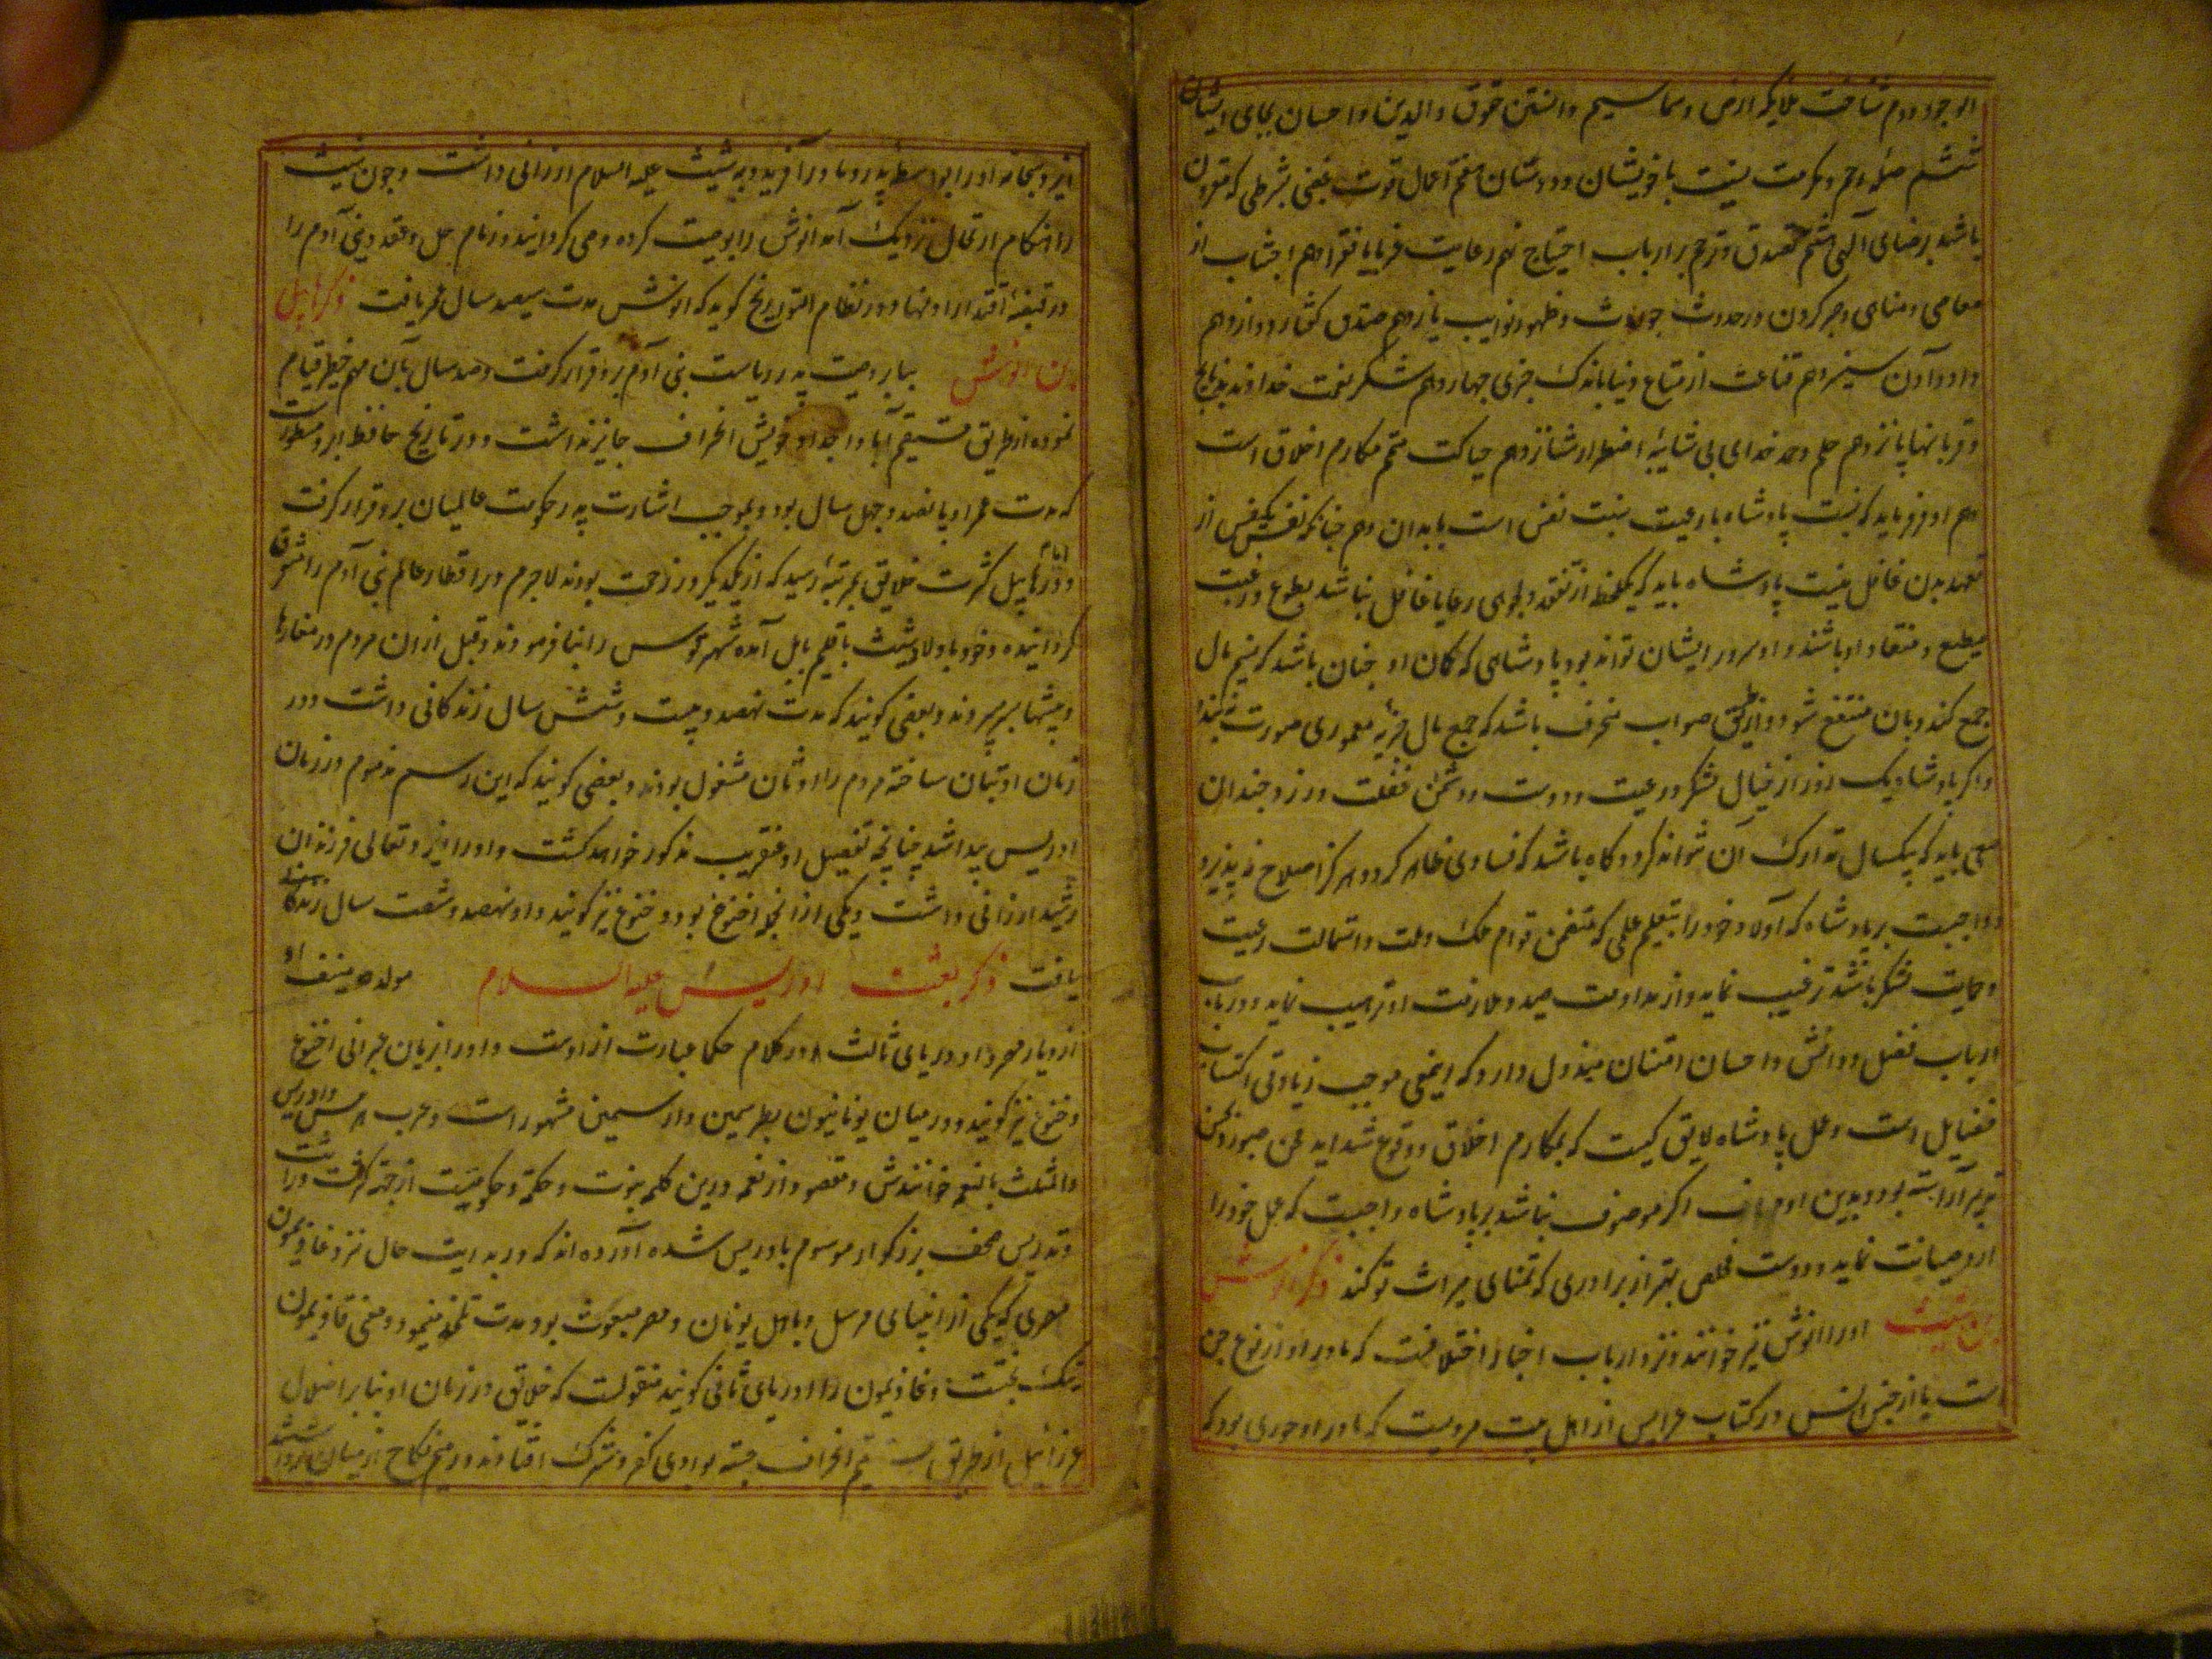 الوجود دوم شناخت ملایکه ارض و سما سیم دانستن حقوق والدین و احسان بجای ایشان
ششم صله رحم و مکرمت نسبت با خویشان و دوستان هفتم اعمال قوت غضبی بشرطی که مقرون
باشد برضای الهی هشتم تصدق و ترحم بر ارباب احتیاج نهم رعایت غربا یا فقرا دهم اجتناب از
معاصی و مناهی و صبر کردن در حدوث حوادث و ظهور نوایب یازدهم صدق گفتار دوازدهم
داد دادن سیزدهم قناعت از متاع دنیا باندک چیزی چهاردهم شکر نعمت خداوند بذبایح
و قربانها پانزدهم حلم و حمد خدای بی شایبه اضطرار شانزدهم حیا که متمم مکارم اخلاق است
هم او فرماید که نسبت پادشاه با رعیت نسبت نفس است با بدان و هم چنانکه نفس یکنفس از
تعهد بدن غافل نیست پادشاه باید که یک لحظه از تفقد دلجوی رعایا غافل نباشد بطوع و رغبت
مطیع و منقاد او باشند و او سرور ایشان تواند بود پادشاهی که گمان او چنان باشد که نیم مال
جمع کند و بان منتفع شود و از طریق صواب منحرف باشد که جمع مال جز به معموری صورت نبندد
و اگر پادشاه یک روز از خیال لشکر و رعیت و دوست و دشمن غفلت ورزد چندان
سعی باید که بیکسال تدارک آن نتواند کرد و گاه باشد که فسادی ظاهر گردد و هرگز اصلاح نه پذیرد
و واجبست بر پادشاه که اولاد خود را بتعلیم علمی که متضمن قوام ملک و ملت و استمالت رعیت
و حمایت لشکر باشد ترغیب نماید و از مداومت صید و ملازمت او ترهیب نماید و در باب
ارباب فضل و دانش و احسان امتنان مبذول دارد که اینمعنی موجب زیادتی اکتساب
فضایل است و محل پادشاه لایق کیست که بمکارم اخلاق و وقوع شداید محن صبور و بحسن
تدبیر آراسته بود و بدین اوصاف اگر موصوف نباشد بر پادشاه واجبست که محل خود را
ازو صیانت نماید و دوست مخلص بهتر از برادری که تمنای میراث تو کند ذکر انوش
بن شیث او را انوش نیز خوانند و نزد ارباب اخبار اختلافست که مادر او از نوع جن
است یا از جنس انس در کتاب عرایس از اهل بیت مرویست که مادر او حوری بود که
ایزد سبحانه او را بواسطه پدر و مادر آفریده به شیث علیه السلام ارزانی داشت و چون شیث
را هنگام ارتحال نزدیک آمد انوش را بوصیت کرده وصی گردانید و زمام حل و عقد و بنی آدم را
در قبضه اقتدار او نهاد و در نظام التواریخ گوید که انوش مدت سیصد سال عمر یافت ذکر مهلائیل
بن انوش بنابر وصیت پدر ریاست بنی آدم برو قرار گرفت و صد سال بآن مهم خطیر قیام
نموده از طریق مستقیم آبا و اجداد خویش انحراف جایز نداشت و در تاریخ حافظ ابرو مسطورست
که مدت عمر او پانصد و چهل سال بود و بموجب اشارت پدر حکومت عالمیان برو قرار گرفت
و در ایام مهلائیل کثرت خلایق بمرتبه رسید که از یکدیگر در زحمت بودند لاجرم در اقطار عالم بنی آدم را متفرق
گردانیده و خود با اولاد شیث باقلیم بابل آمده شهر سوس را بنا فرمودند و قبل از ان مردم در مغارها
و بیشها بسر میبردند و بعضی گویند که مدت نهصد و بیست و شش سال زندگانی داشت و در
زمان او بتان ساخته مردم را اوثان مشغول بودند و بعضی گویند که این رسم مذموم در زمان
ادریس پیدا شد چنانچه تفصیل او عنقریب مذکور خواهد گشت و او را ایزد تعالی فرزندان
رشید ارزانی داشت و یکی از انجمله اخنوخ بود و خنوخ نیز گویند و او نهصد و شصت سال زندگانی
یافت ذکر بعثت ادریس علیه السلام مولد او منف
از دیار مصر و او دریای ثالث در کلام حکما عبارت از اوست و او را بزبان عبرانی اخنوخ
و خنوخ نیز گویند و در میان یونانیون بطرسمین و ارسمین مشهور است و عرب هرمس و ادریس
والمثلث بالنعمه خوانندش و مقصود از نعمه درین کلمه نبوت و حکمة و حکومتست از جهة کثرت دراست
و تدریس صحف بزرگوار موسوم بادریس شده آورده اند که در بدایت حال نزد غاذیمون
مصری که یکی از انبیای مرسل و باهل یونان و مصر مبعوث بود مدت تلمذ مینمود و معنی غاذیمون
نیک بختست و غاذیمون را اوریای ثانی گویند منقولست که خلایق در زمان او بنابر اضلال
عزازیل از طریق مستقیم انحراف جسته بوادی کفر و شرک افتادند و رسم نکاح از میان برداشتند